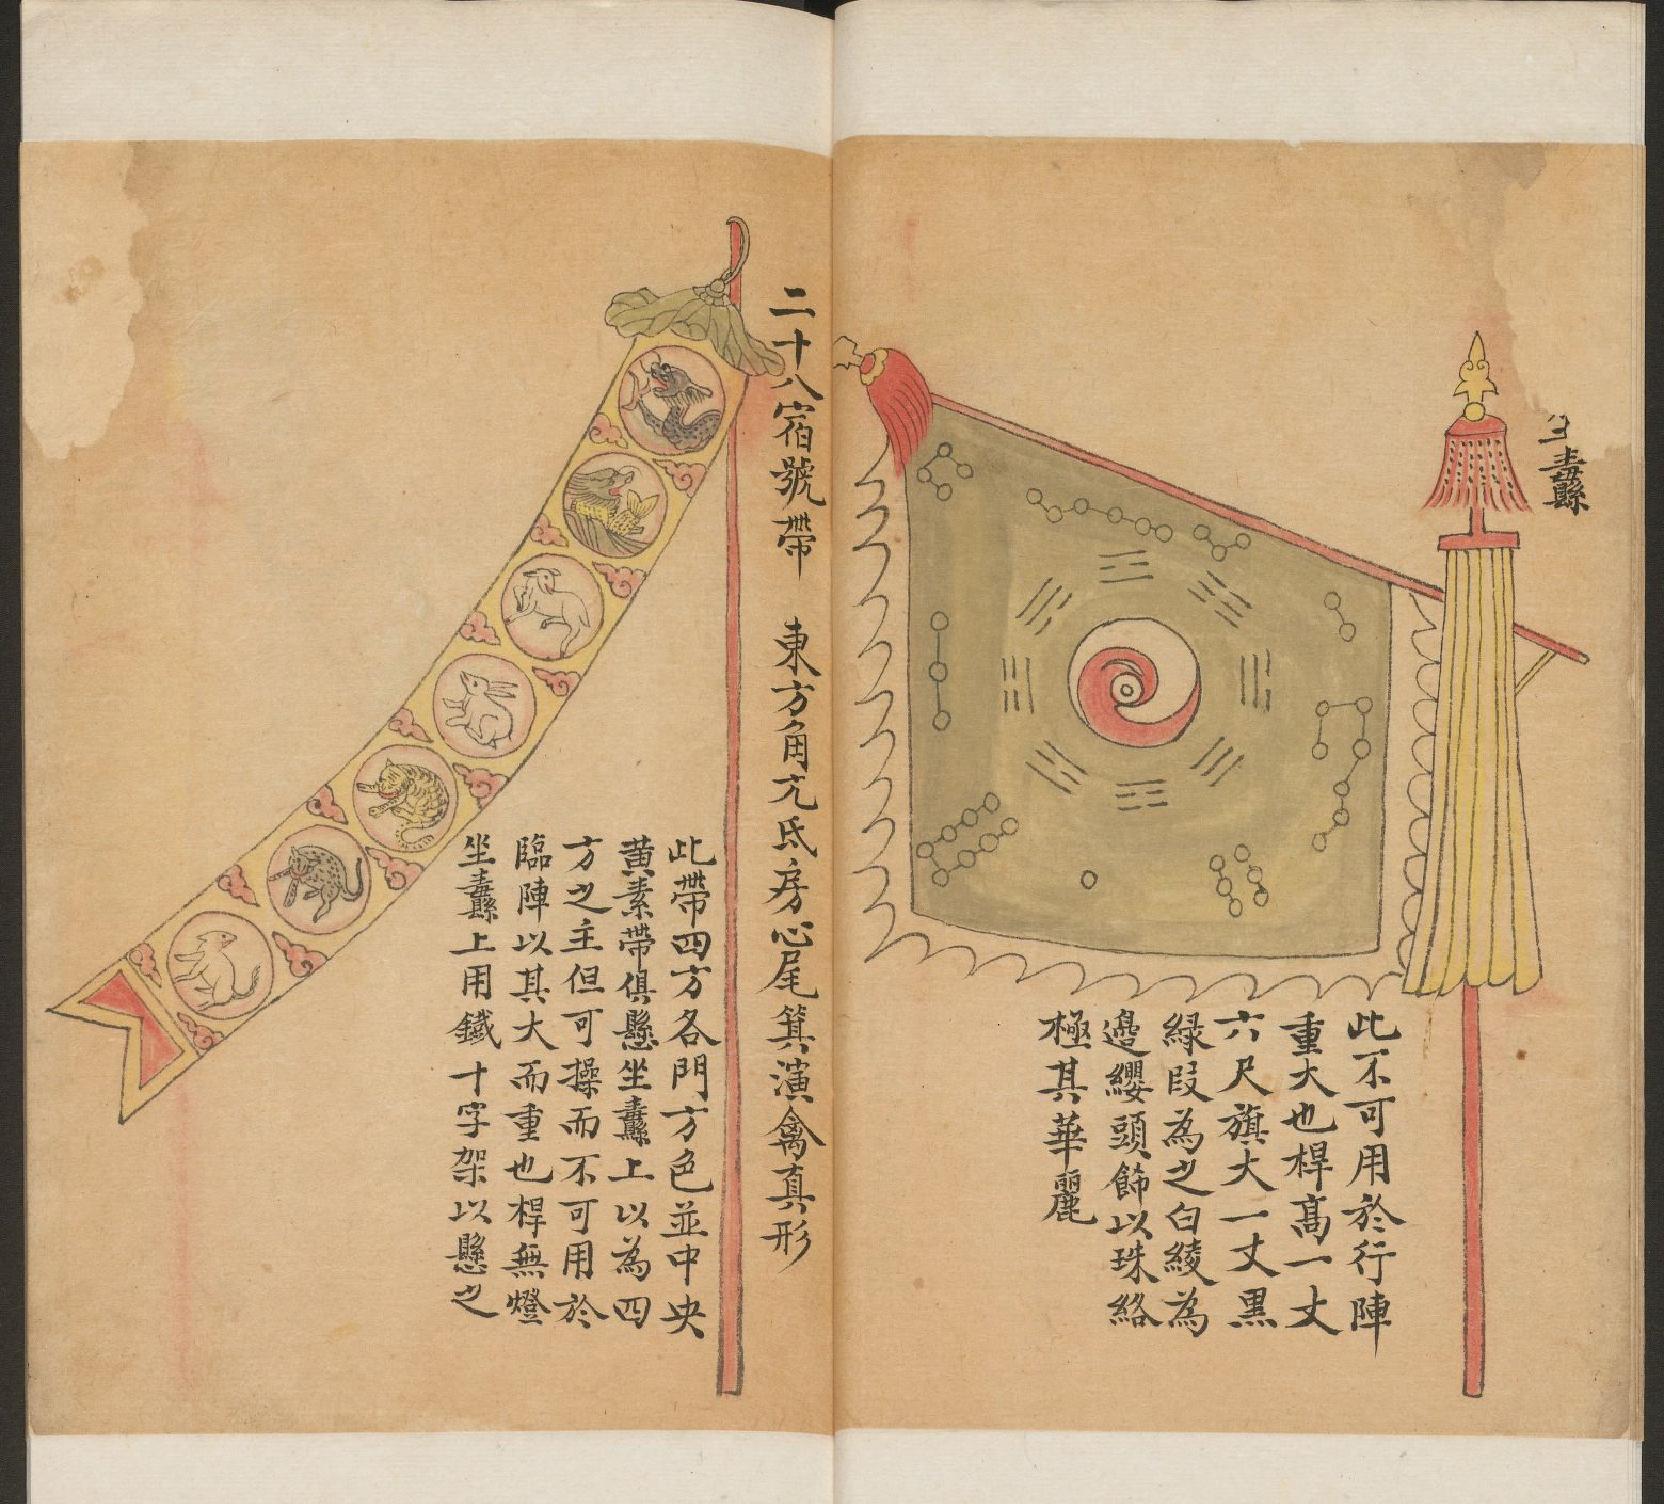 坐纛
此不可用於行陣
重大也桿高一丈
六尺旗大一丈黒
緑段為之白綾為
邉纓頭飾以珠絡
極其華麗
二十八宿號帶　東方角亢氐房心尾箕演禽真形
此帶四方各門方色並中央
黄素帶俱懸坐纛上以為四
方之主但可操而不可用於
臨陣以其大而重也桿無燈
坐纛上用鐵十字架以懸之